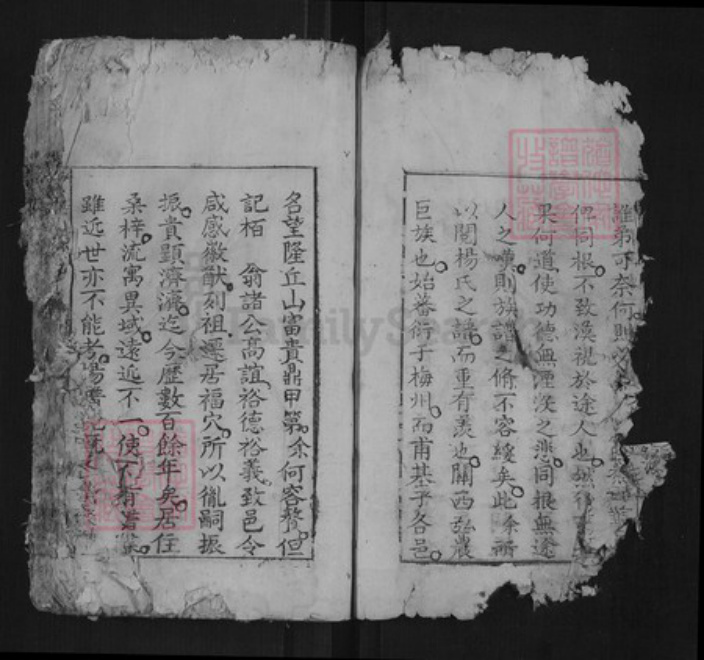 誰弟可奈何則
仰同根不致漠視於途人也
果何道使功德無湮沒之悲同根無途
人之嘆則族譜之脩不容緩矣此余所
以閱楊氏之譜而重有羨也關西弘農
巨族也始蕃衍于梅州而甫基乎各邑
名望隆丘山富貴鼎甲第余何容贅但
記栢 翁諸公高誼裕德裕義致邑令
咸感徽猷列祖遷居福穴所以胤嗣振
振貴顯濟濟迄今歷數百餘年矣居住
桑梓流寓異域遠近不一使不有
雖近世亦不能考
FamilySearch